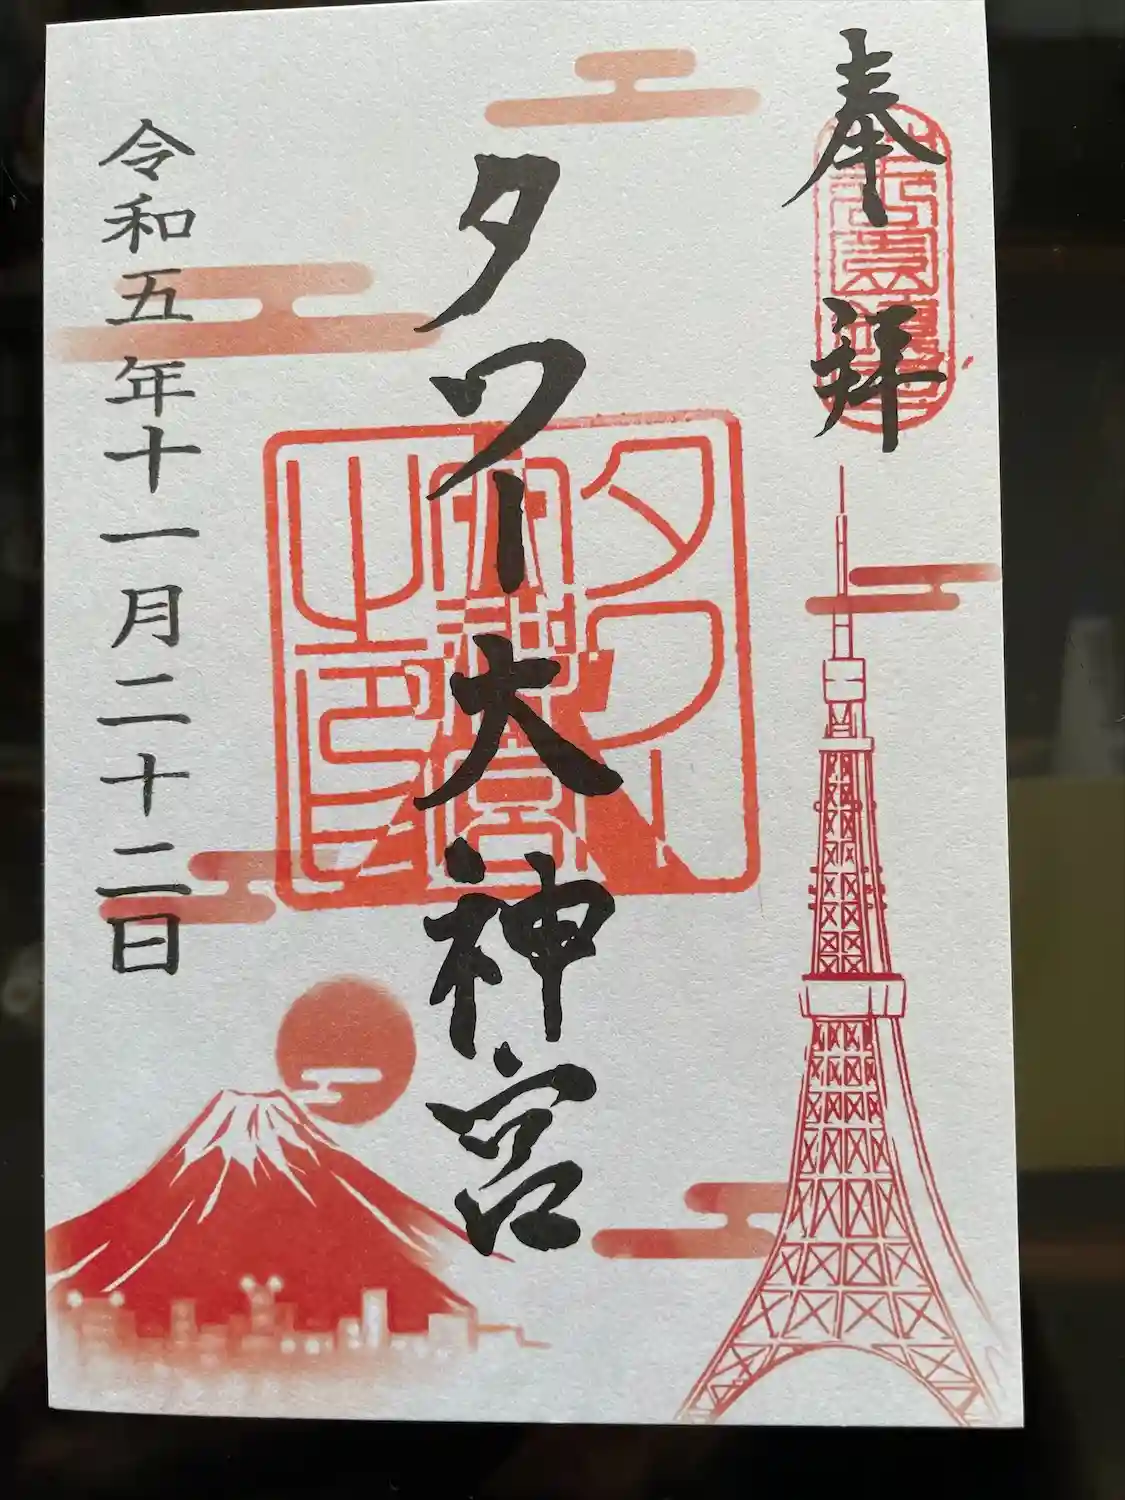 奉拝
タワー大神宮
タワー大神宮之印
令和五年十一月二十二日